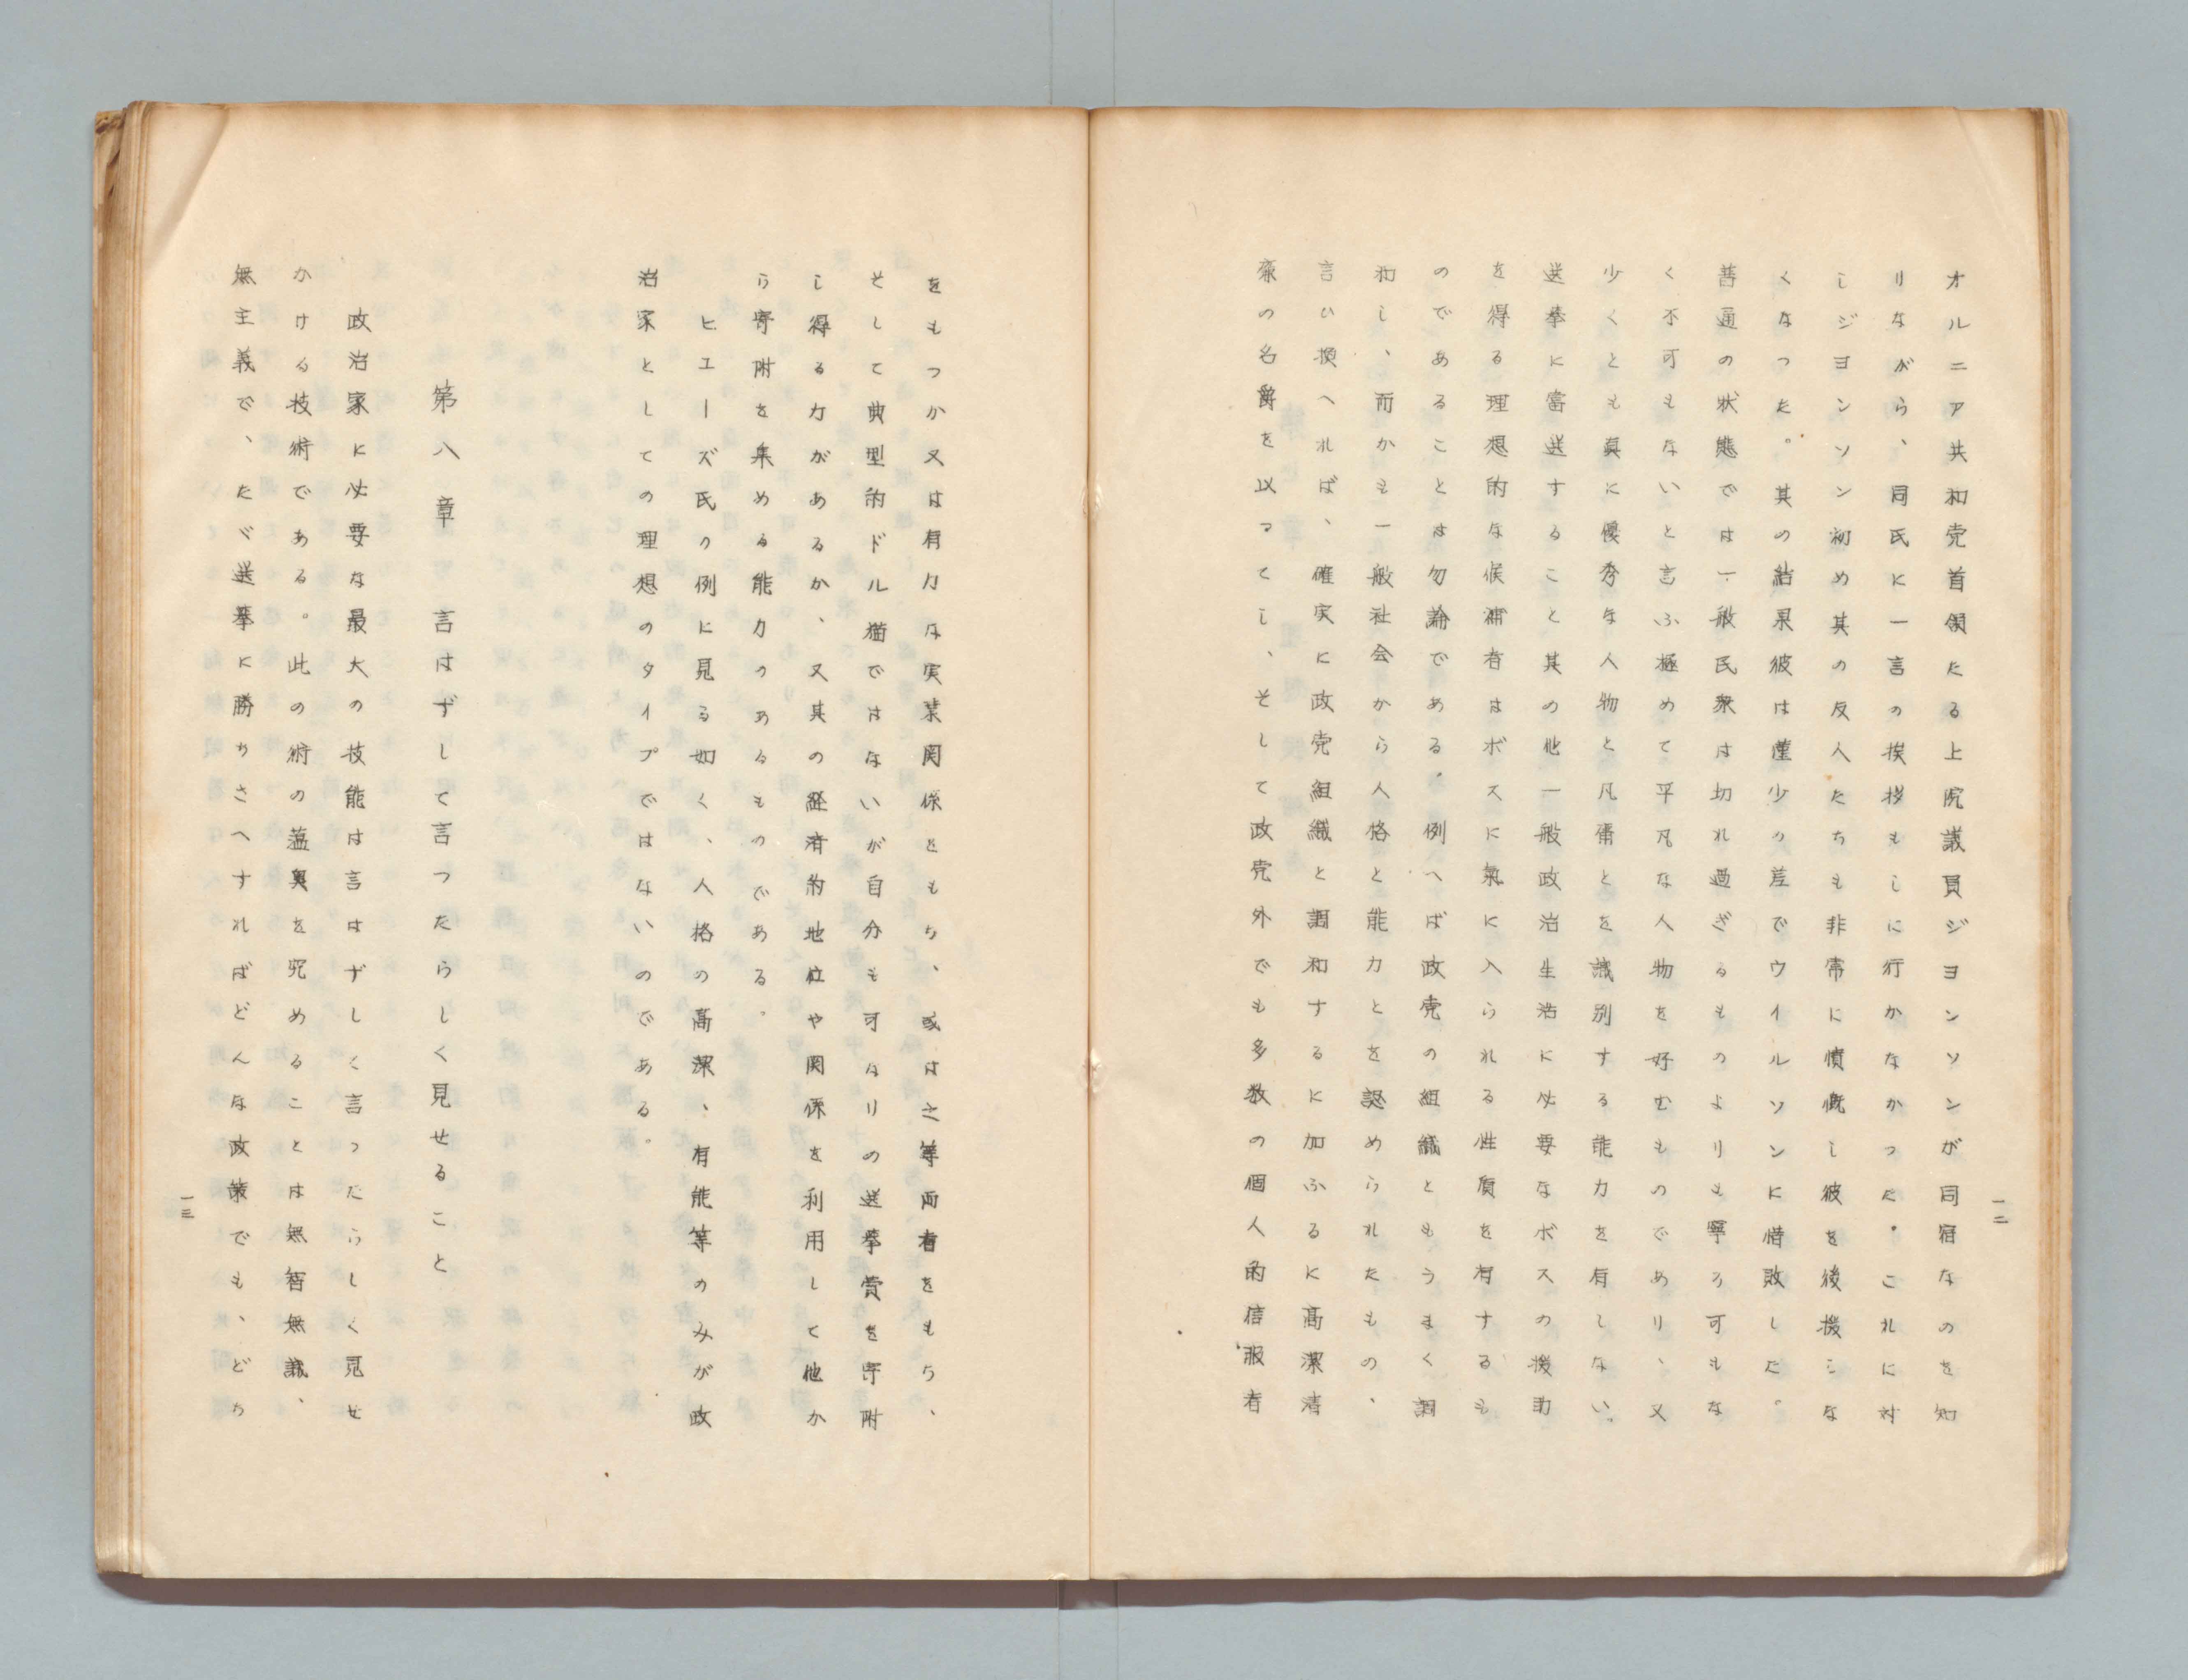 オルニア共和党首領たる上院議員ジヨンソンが同宿なのを知
りながら、同氏に一言の挨拶もしに行かなかつた。これに対
しジヨンソン初め其の友人たちも非常に憤慨し彼を後援しな
くなつた。其の結果彼は僅少の差でウイルソンに惜敗した。
普通の状態では一般民衆は切れ過ぎるものよりも寧ろ可もな
く不可もないと言ふ極めて平凡な人物を好むものであり、又
少くとも真に優秀な人物と凡庸とを識別する能力を有しない。
選挙に當選することと其の他一般政治生活に必要なボスの援助
を得る理想的な候補者はボスに氣に入られる性質を有するも
のであることは勿論である。例へば政党の組織ともうまく調
和し、而かも一般社会から人格と能力とを認められたもの、
言ひ換へれば、確実に政党組織と調和するに加ふるに高潔清
廉の名爵を以つてし、そして政党外でも多数の個人的信服者
一二
をもつか又は有力な実業関係をもち、或は之等両者をもち、
そして典型的ドル猫ではないが自分も可なりの選挙費を寄附
し得る力があるか、又其の経済的地位や関係を利用して他か
ら寄附を集める能力のあるものである。
ヒユーズ氏の例に見る如く、人格の高潔、有能等のみが政
治家としての理想のタイプではないのである。
第八章　言はずして言つたらしく見せること
政治家に必要な最大の技能は言はずして言つたらしく見せ
かける技術である。此の術の蘊奥を究めることは無智無識、
無主義で、たゞ選挙に勝ちさへすればどんな政策でも、どち
一三